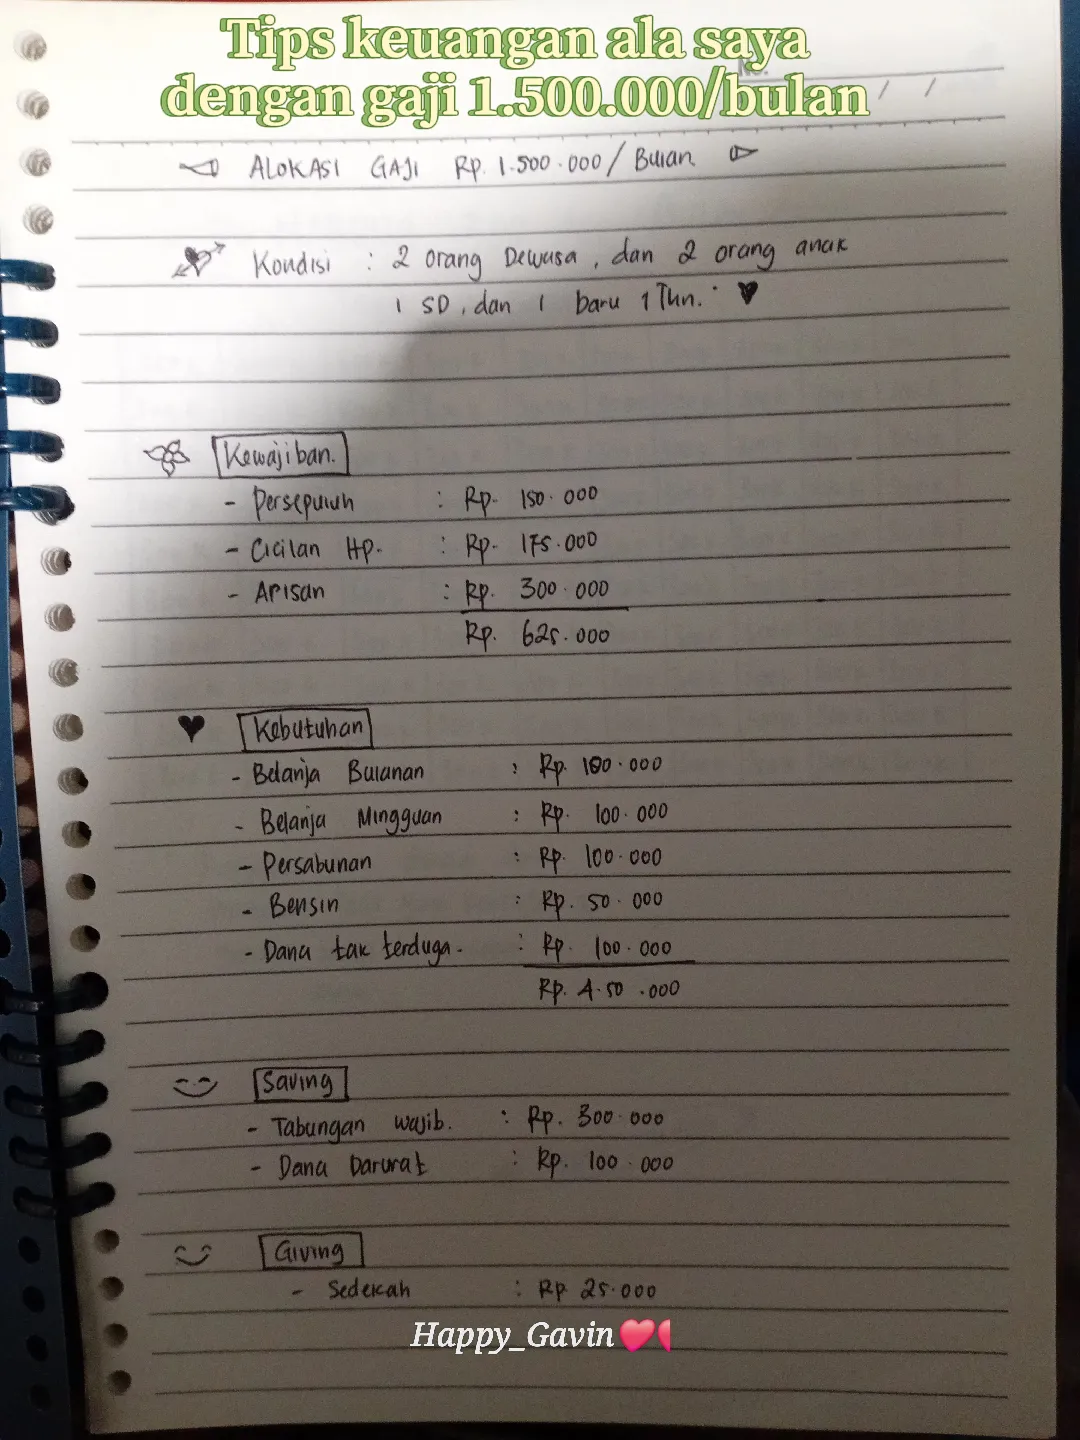 Tips keuangan ala saya
dengan gaji 1.500.000/bulan
No.
/ /
ALOKASI GAJI Rp. 1.500.000/Bulan
Kondisi : 2 orang Dewasa, dan 2 orang anak
1 SD, dan 1 baru 1 Thn.
Kewajiban.
- Persepuluh : Rp. 150.000
- Cicilan HP. : Rp. 175.000
- Arisan : Rp. 300.000
Rp. 625.000
Kebutuhan
- Belanja Bulanan : Rp. 100.000
- Belanja Mingguan : Rp. 100.000
- Persabunan : Rp. 100.000
- Bensin : Rp. 50.000
- Dana tak terduga. : Rp. 100.000
Rp. 450.000
Saving
- Tabungan wajib. : Rp. 300.000
- Dana Darurat : Rp. 100.000
Giving
- Sedekah : Rp 25.000
Happy_Gavin